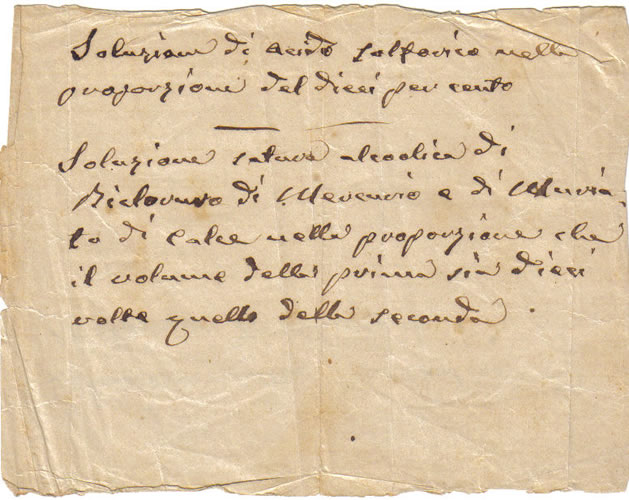 Soluzione di acido solforico nella
proporzione del dieci per cento
Soluzione satura alcoolica di
Bicloruro di Mercurio e di Muria-
to di Calce nella proporzione che
il volume della prima sia dieci
volte quello della seconda.